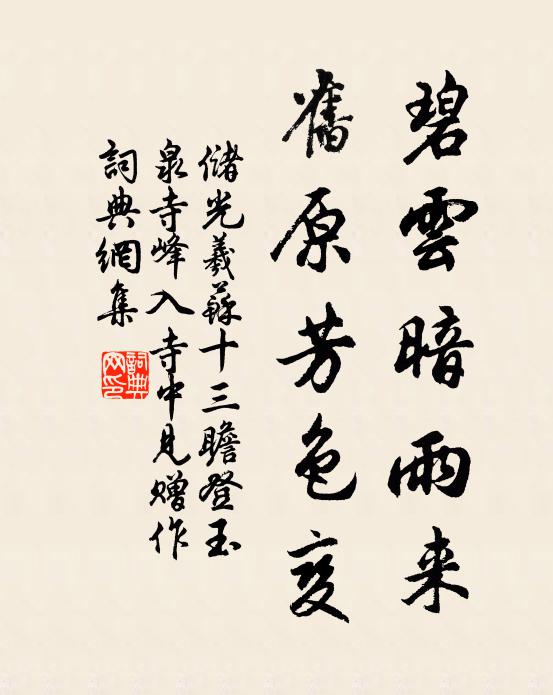 碧雲暗雨来
舊原芳色变
儲光羲蘇十三瞻登玉
泉寺峰入寺中見赠作
詞典網集
詞典
网印